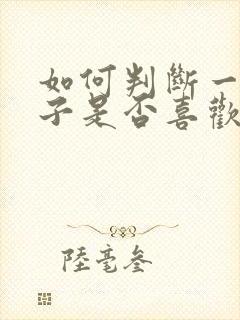 如何判斷一
子是否喜歡
陸毫叁